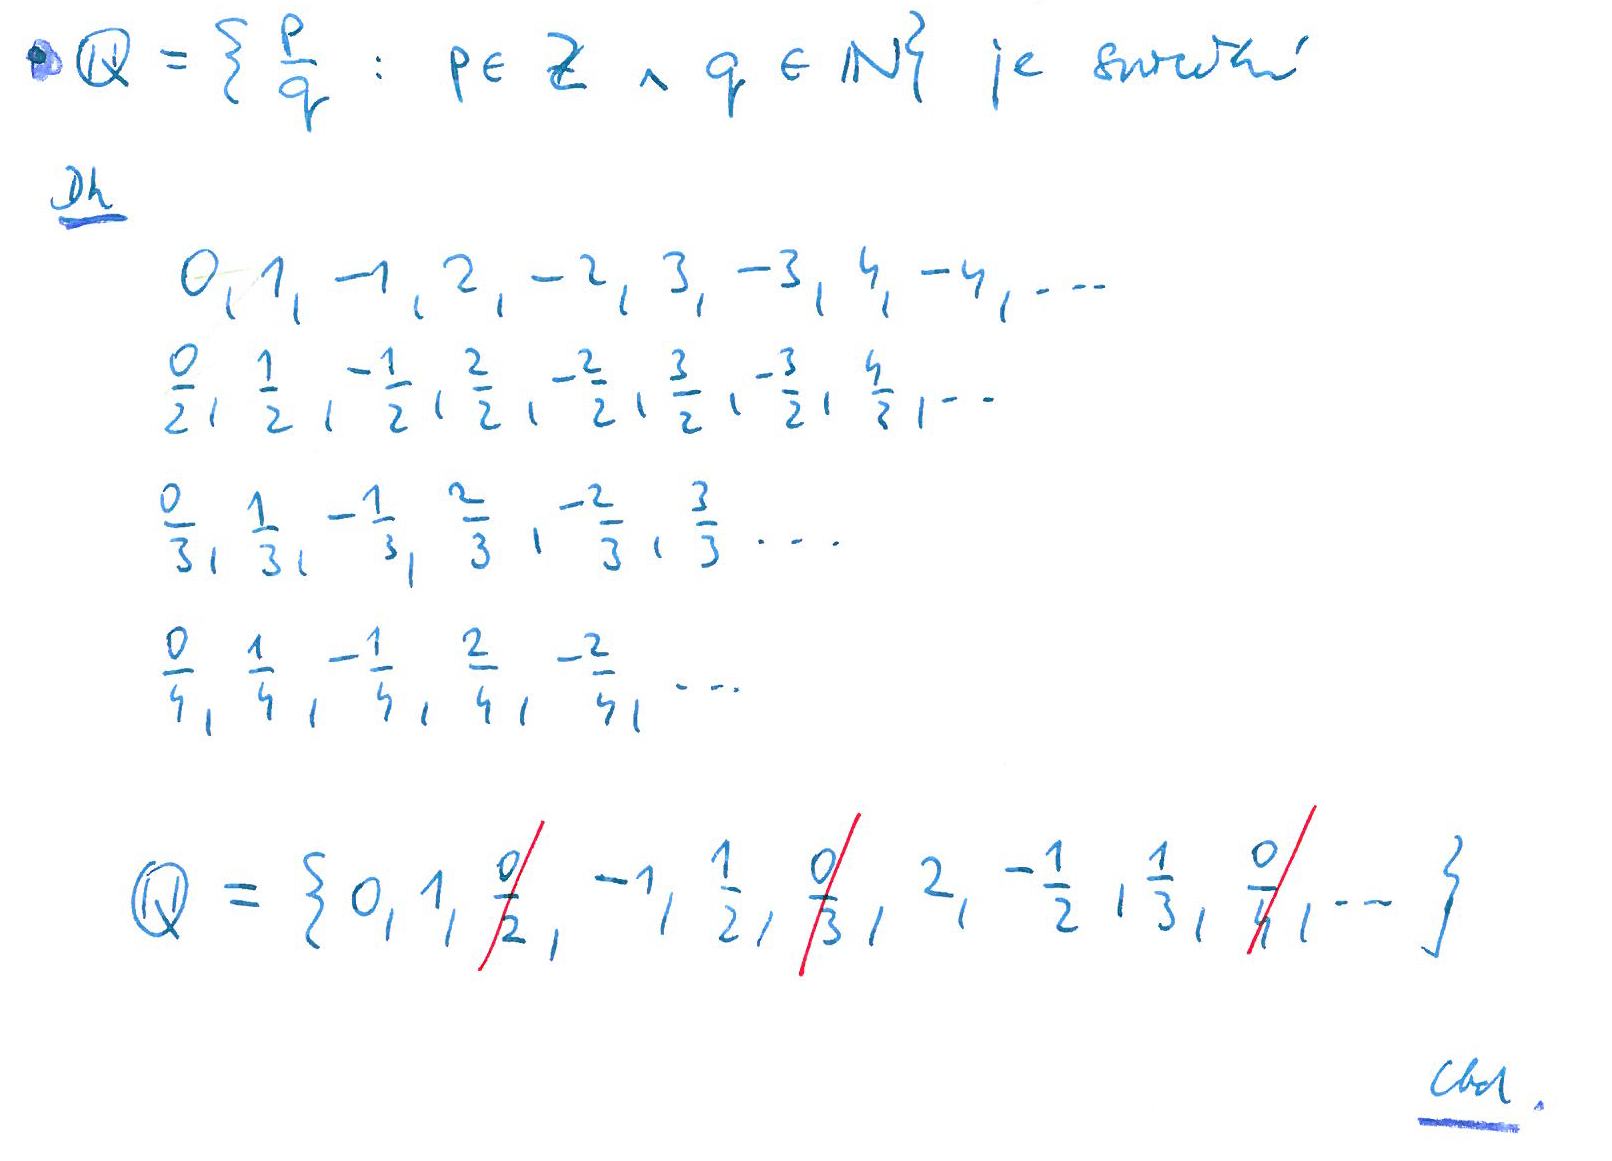 • ℚ = { p/q : p ∈ ℤ ∧ q ∈ ℕ } je
Dk
0, 1, -1, 2, -2, 3, -3, 4, -4, ...
0/2, 1/2, -1/2, 2/2, -2/2, 3/2, -3/2, 4/2, ...
0/3, 1/3, -1/3, 2/3, -2/3, 3/3 ...
0/4, 1/4, -1/4, 2/4, -2/4, ...
ℚ = { 0, 1, 0/2, -1, 1/2, 0/3, 2, -1/2, 1/3, 0/4, ... }
Cbd.